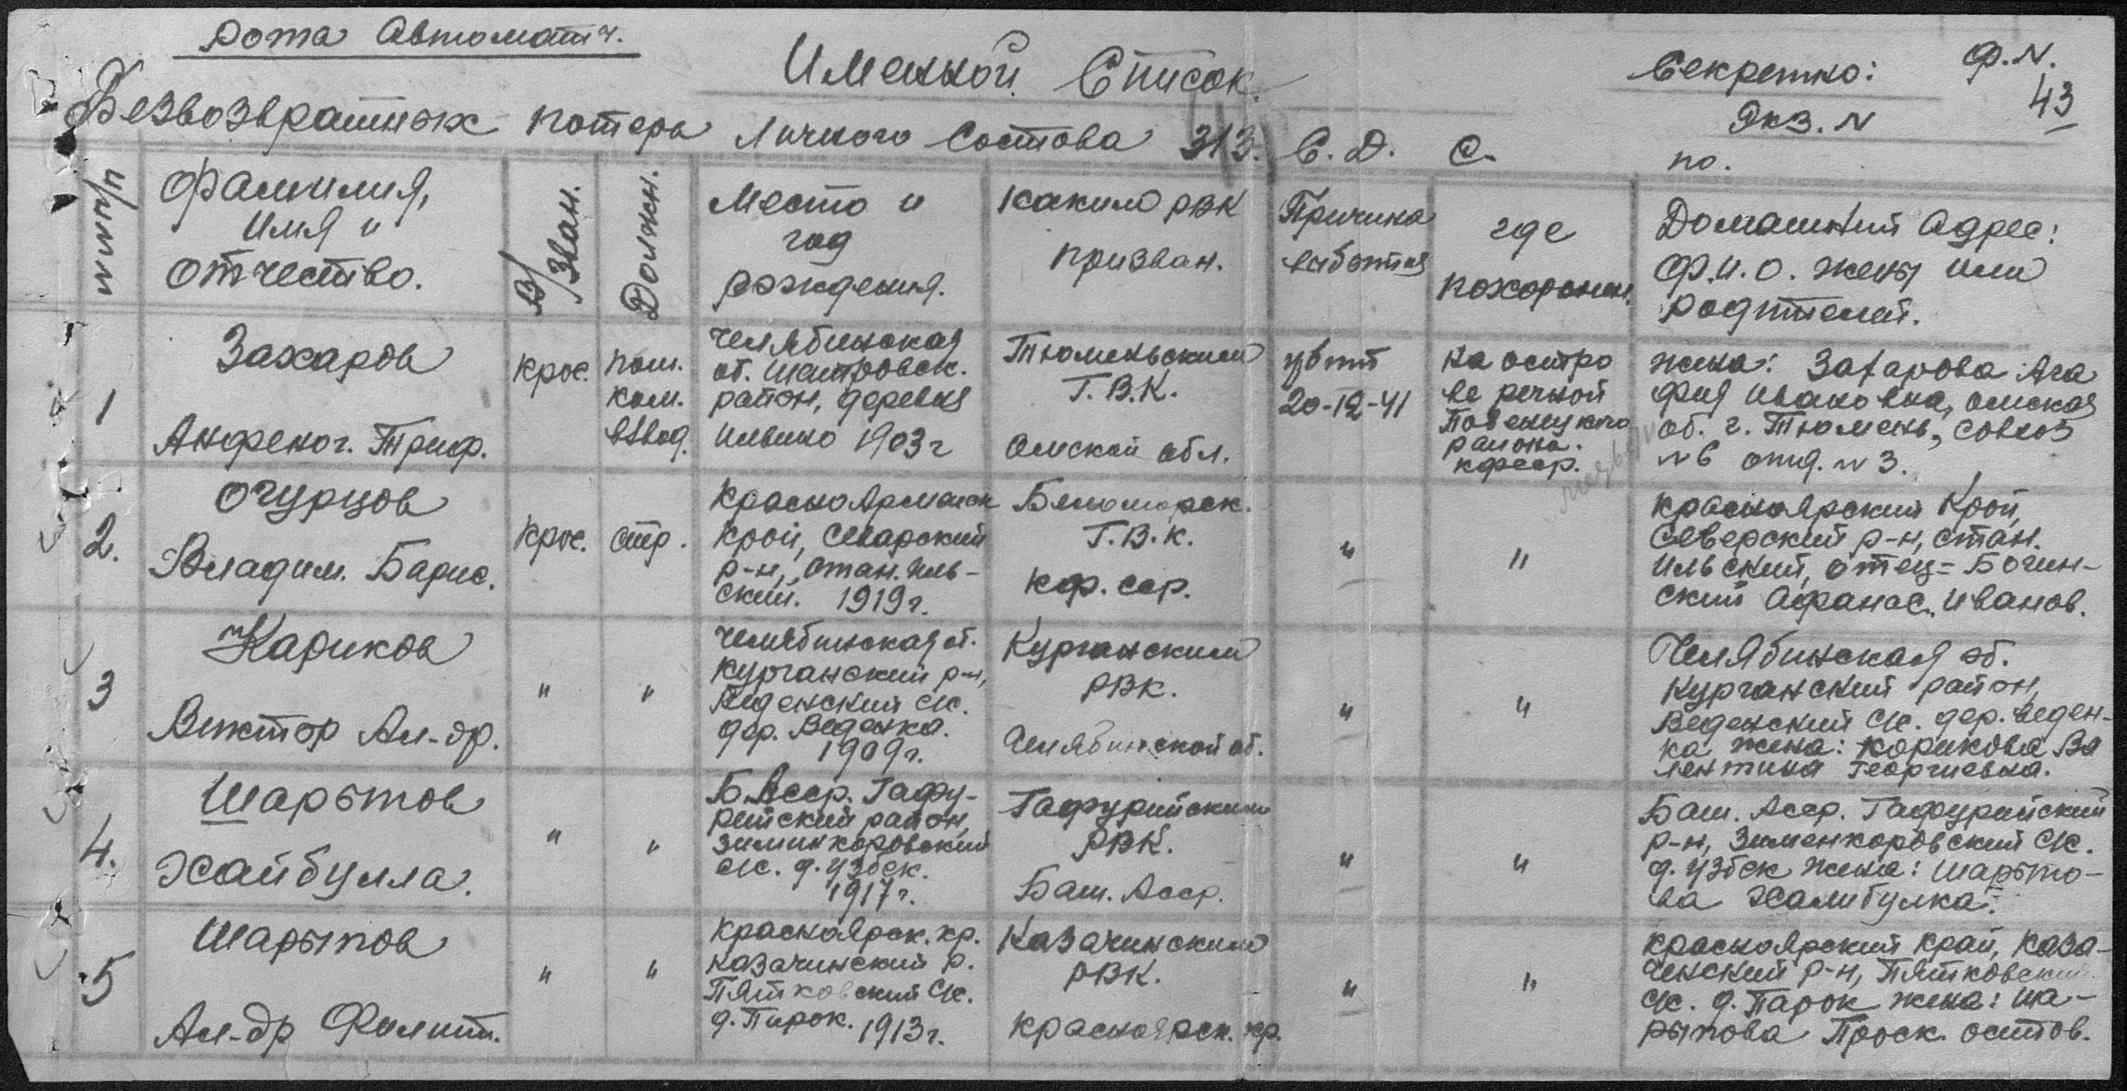 Рота Автоматч.
Именной Список.
Секретно:
Ф.N.
43
Экз. N
Безвозвратных потерь Личного Состава 313. С. Д. С. по.
ппп/п
Фамилия,
Имя и
отчество.
В/Зван.
Должн.
Место и
год
рождения.
каким РВК
призван.
Причина
выбытия
где
похоронен.
Домашний Адрес:
Ф.И.О. жены или
родителей.
1
Захаров
Анфеног. Триф.
крос.
пом.
ком.
взвод.
Челябинская
об. Шатровск.
район, деревня
Ильино 1903 г
Тюменьским
Г.В.К.
Омской обл.
убит
20-12-41
на остро
ве речной
Повенецкого
района.
кфсср.
жена: Захарова Ага
фия Ивановна, омская
об. г. Тюмень, совхоз
N 6 отд. N 3.
2.
Огурцов
Владим. Борис.
Крос.
стр.
Красноармейск
Край,
р-н, стан. Иль-
ский. 1919 г.
Беломорск.
Г.В.К.
кф. сср.
"
"
красноярский Край,
Северский р-н, стан.
Ильский, отец = Богин-
ский Афанас. Иванов.
3
Кариков
Виктор Ал-др.
"
"
Челябинская об.
Курганский р-н,
Веденский с/с.
дер. Веденка.
1909 г.
Курганским
РВК.
Челябинской об.
"
"
Челябинская об.
Курганский район,
Веденский с/с. дер. Веден-
ка жена: Корикова Ва
лентина Георгиевна.
4.
Шарытов
Хайбулла.
"
"
Б. Асср. Гафу-
рийский район,
зиминкаровский
с/с. д. Узбек.
1917 г.
Гафурийским
РВК.
Баш. Асср.
"
"
Баш. Асср. Гафурийский
р-н, Зименкоровский с/с.
д. Узбек жена: Шарыто-
ва Халибулка.
5
Шарыпов
Ал-др Филипп.
"
"
красноярск. кр.
казачинский р.
Пятковский с/с.
д. Пирок. 1913 г.
Казачинским
РВК.
красноярск. кр.
"
"
красноярский край, каза-
ченский р-н, Пятковский
с/с. д. Парок жена: Ша-
рыпова Проск. остов.